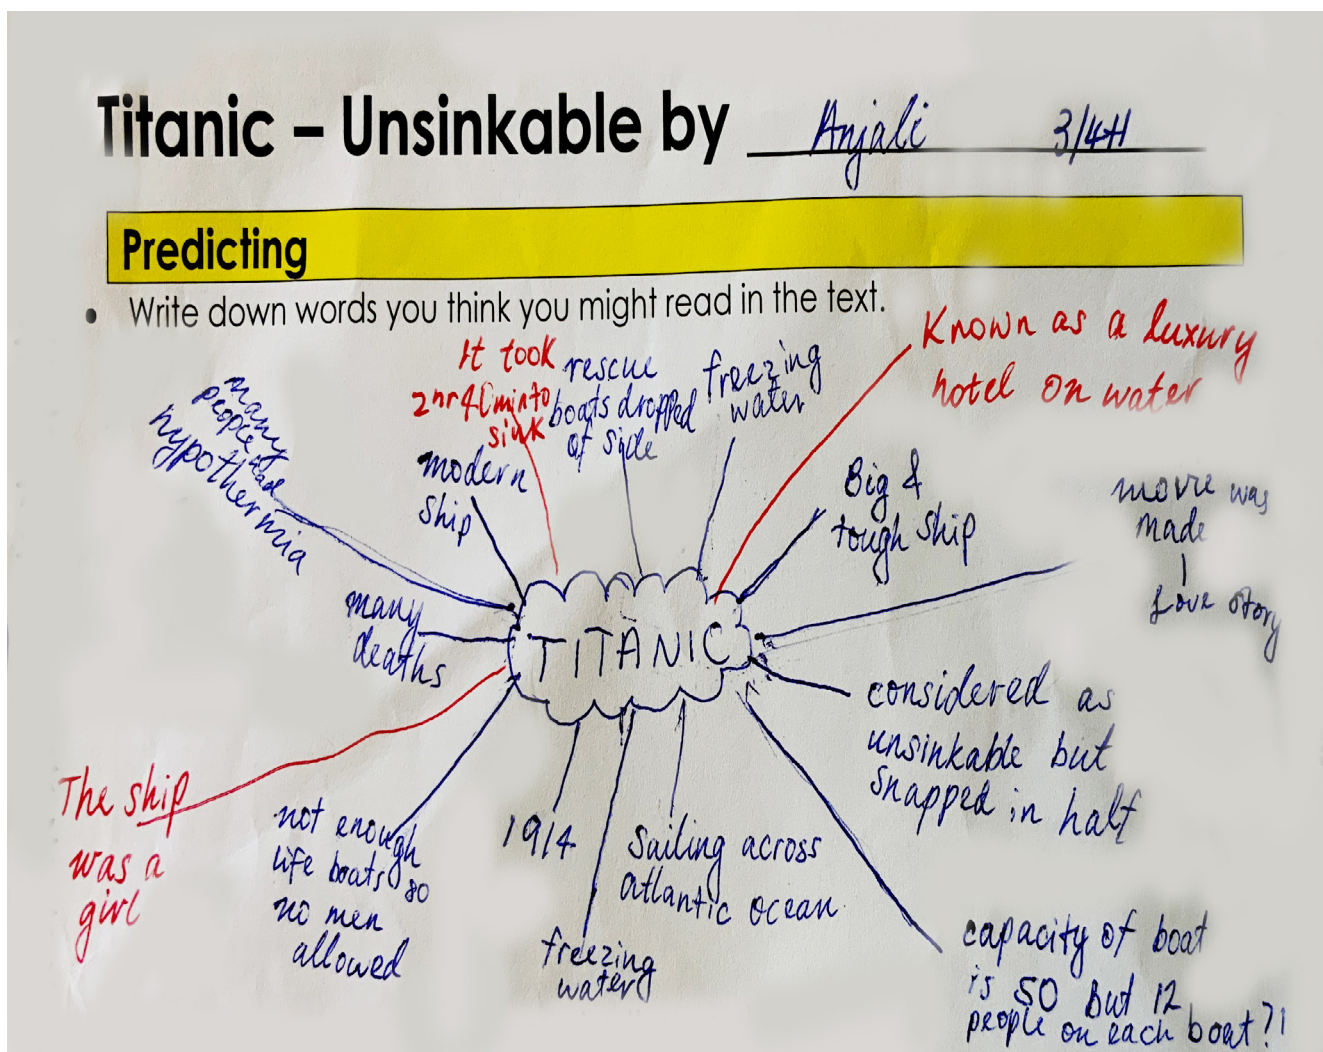 Titanic – Unsinkable by Anjali 3/4H
Predicting
• Write down words you think you might read in the text.
Known as a luxury
hotel on water
It took
2hr 40min to
sink
rescue
boats dropped
of side
freezing
water
many
people had
hypothermia
modern
ship
Big &
tough ship
movie was
made
love story
many
deaths
TITANIC
considered as
unsinkable but
snapped in half
The ship
was a
girl
not enough
life boats so
no men
allowed
1914
Sailing across
atlantic ocean
freezing
water
capacity of boat
is 50 But 12
people on each boat?!